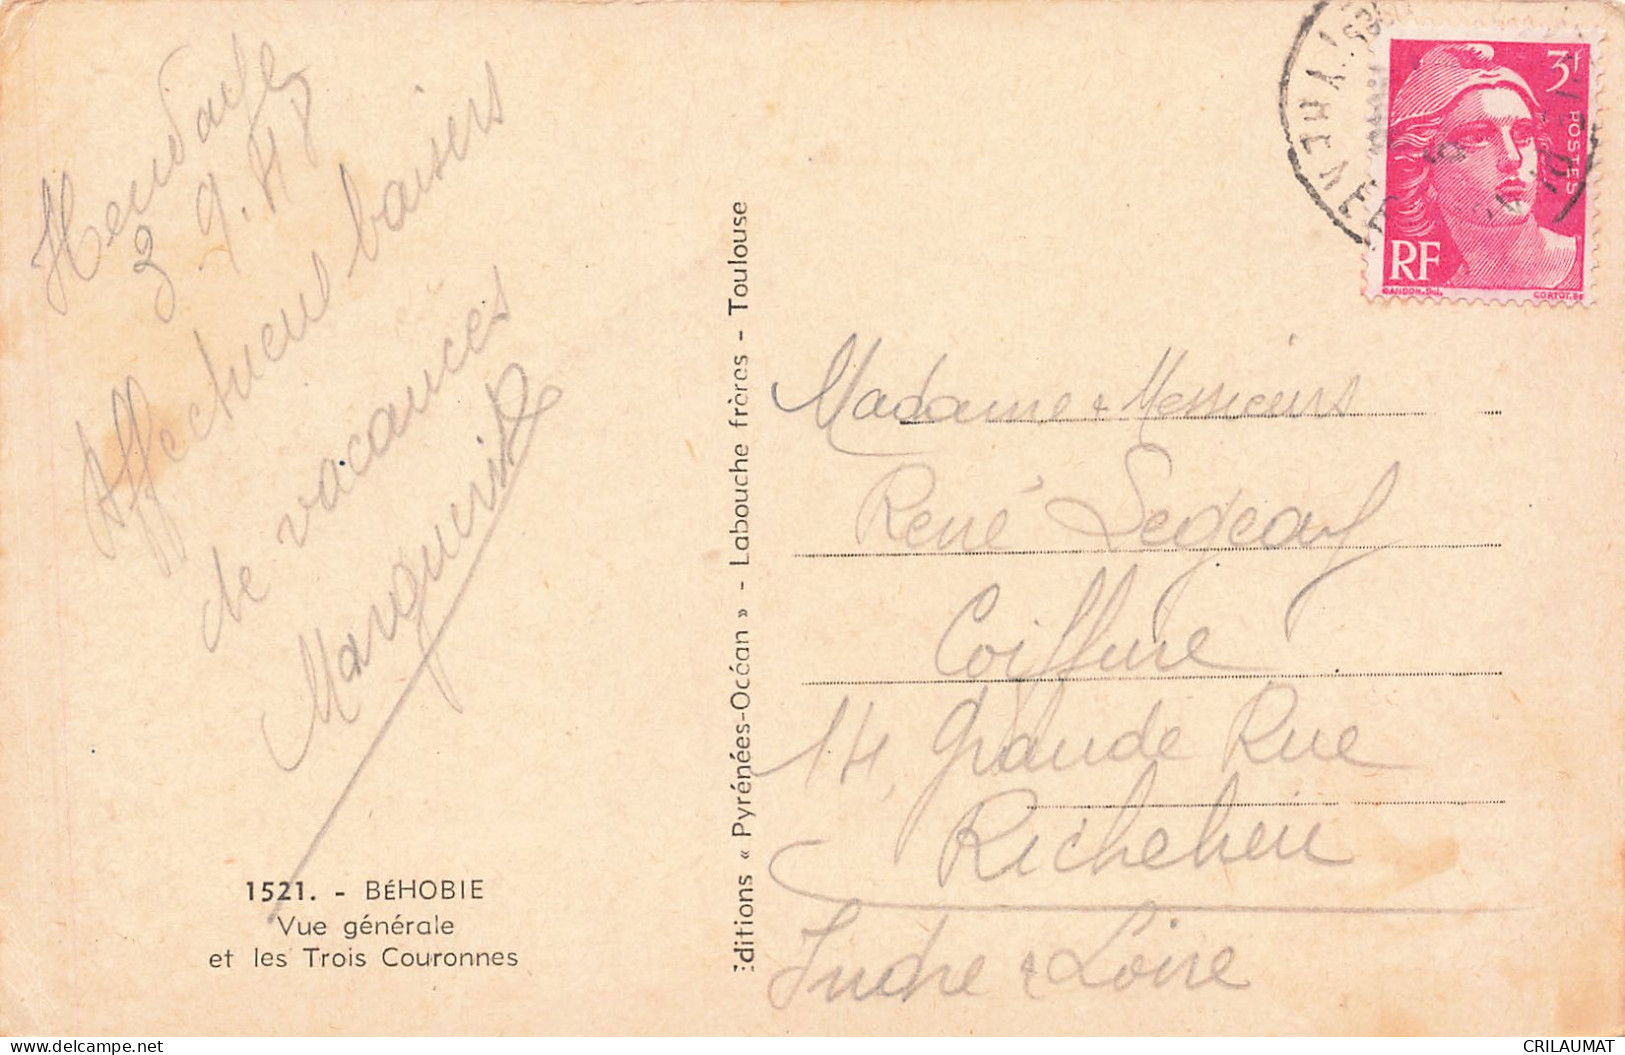 Hendaye
3 9.48
Affectueux baisers
de vacances
Marguerite
1521. - BÉHOBIE
Vue générale
et les Trois Couronnes
Éditions « Pyrénées-Océan » - Labouche frères - Toulouse
3f
POSTES
RF
GANDON.Del.
CORTOT.Sc
Madame & Messieurs
René
Coiffure
14, Grande Rue
Richelieu
Indre & Loire
delcampe.net
CRILAUMAT